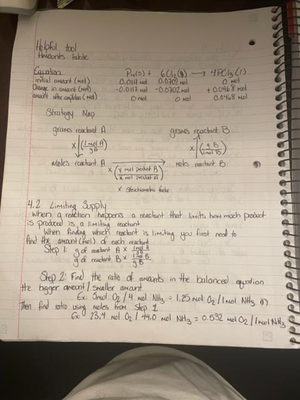 Helpful tool
Amounts table
Equation: P4(s) + 6Cl2(g) → 4PCl3(l)
initial amount (mol) 0.0117 mol 0.0702 mol 0 mol
Change in amount (mol) -0.0117 mol -0.0702 mol +0.0468 mol
amount after completion (mol) 0 mol 0 mol 0.0468 mol
Strategy Map
grams reactant A grams reactant B
× (1 mol A / g A) × (g B / 1 mol B)
moles reactant A moles reactant B
× (x mol product B) / (x mol product A)
× stoichiometric factor
4.2 Limiting Supply
When a reaction happens a reactant that limits how much product
is produced is a limiting reactant
When finding which reactant is limiting you first need to
find the amount (mol) of each reactant
Step 1: g of reactant A × 1 mol A / g A
g of reactant B × 1 mol B / g B
Step 2: Find the rate of amounts in the balanced equation
the bigger amount / smaller amount
Ex: 5mol O2 / 4 mol NH3 = 1.25 mol O2 / 1 mol NH3
Then find ratio using moles from Step 1
Ex: 23.4 mol O2 / 44.0 mol NH3 = 0.532 mol O2 / 1 mol NH3